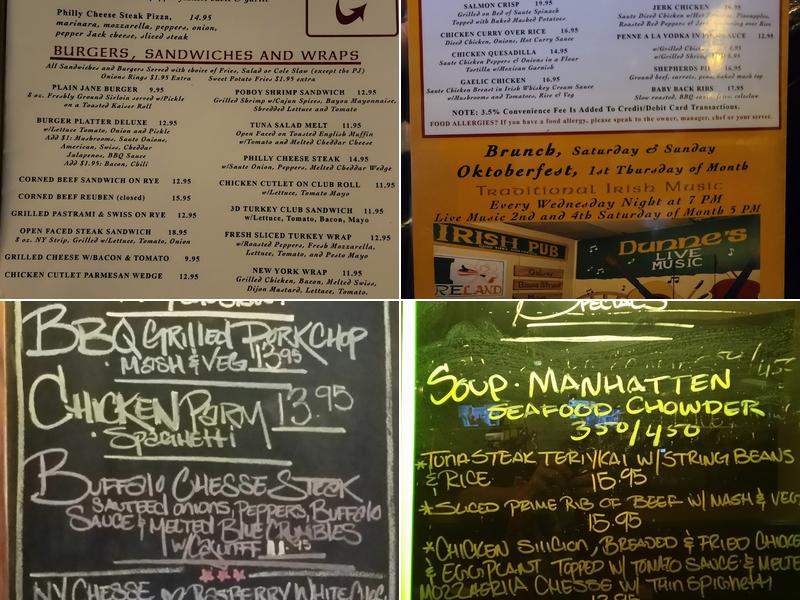 Philly Cheese Steak Pizza, 14.95
marinara, mozzarella, peppers, onion,
pepper Jack cheese, sliced steak
BURGERS, SANDWICHES AND WRAPS
All Sandwiches and Burgers Served with choice of Fries, Salad or Cole Slaw (except the PJ)
Onions Rings $1.95 Extra Sweet Potato Fries $1.95 extra
PLAIN JANE BURGER 9.95
8 oz. Freshly Ground Sirloin served w/Pickle
on a Toasted Kaiser Roll
BURGER PLATTER DELUXE 12.95
w/Lettuce Tomato, Onion and Pickle
Add $1: Mushrooms, Saute Onions,
American, Swiss, Cheddar
Jalapenos, BBQ Sauce
Add $1.95: Bacon, Chili
CORNED BEEF SANDWICH ON RYE 12.95
CORNED BEEF REUBEN (closed) 15.95
GRILLED PASTRAMI & SWISS ON RYE 12.95
OPEN FACED STEAK SANDWICH 18.95
8 oz. NY Strip, Grilled w/Lettuce, Tomato, Onion
GRILLED CHEESE W/BACON & TOMATO 9.95
CHICKEN CUTLET PARMESAN WEDGE 12.95
POBOY SHRIMP SANDWICH 12.95
Grilled Shrimp w/Cajun Spices, Bayou Mayonnaise,
Shredded Lettuce and Tomato
TUNA SALAD MELT 11.95
Open Faced on Toasted English Muffin
w/Tomato and Melted Cheddar Cheese
PHILLY CHEESE STEAK 14.95
w/Saute Onion, Peppers, Melted Cheddar Wedge
CHICKEN CUTLET ON CLUB ROLL 11.95
w/Lettuce, Tomato Mayo
3D TURKEY CLUB SANDWICH 11.95
w/Lettuce, Tomato, Bacon, Mayo
FRESH SLICED TURKEY WRAP 12.95
w/Roasted Peppers, Fresh Mozzarella,
Lettuce, Tomato, and Pesto Mayo
NEW YORK WRAP 11.95
Grilled Chicken, Bacon, Melted Swiss,
Dijon Mustard, Lettuce, Tomato.
SALMON CRISP 19.95
Grilled on Bed of Saute Spinach
Topped with Baked Mashed Potatoes
CHICKEN CURRY OVER RICE 16.95
Diced Chicken, Onions, Hot Curry Sauce
CHICKEN QUESADILLA 14.95
Saute Chicken Peppers & Onions in a Flour
Tortilla w/Mexican Garnish
GAELIC CHICKEN 16.95
Saute Chicken Breast in Irish Whiskey Cream Sauce
w/Mushrooms and Tomatoes, Rice & Veg
JERK CHICKEN 16.95
Saute Diced Chicken w/Hot Pineapples,
Roasted Red Peppers &
PENNE A LA VODKA IN SAUCE 12.95
w/Grilled
w/Grilled
SHEPHERDS PIE
Ground beef, carrots, peas, baked mash top
BABY BACK RIBS 17.95
Slow roasted, BBQ coleslaw
NOTE: 3.5% Convenience Fee Is Added To Credit/Debit Card Transactions.
FOOD ALLERGIES? If you have a food allergy, please speak to the owner, manager, chef or your server.
Brunch, Saturday & Sunday
Oktoberfest, 1st Thursday of Month
Traditional Irish Music
Every Wednesday Night at 7 PM
Live Music 2nd and 4th Saturday of Month 5 PM
IRISH PUB
IRELAND
Dunne's
LIVE
MUSIC
BBQ Grilled PorkChop
MASH & VEG 13.95
Chicken Parm 13.95
Spaghetti
Buffalo Chesse Steak
Sauteed onions, Peppers, Buffalo
Sauce & Melted Blue Crumbles
NY Chesse
Rasberry White
Specials
Soup · Manhatten
Seafood Chowder
350/450
*Tuna Steak Teriykai w/ String Beans
& Rice 15.95
*Sliced Prime Rib of Beef w/ Mash & Veg
15.95
*Chicken Silicion, Breaded & Fried Chicke
& Eggplant Topped w/ Tomato Sauce & Melte
Mozzaerlla Chesse w/ Thin Spighetti